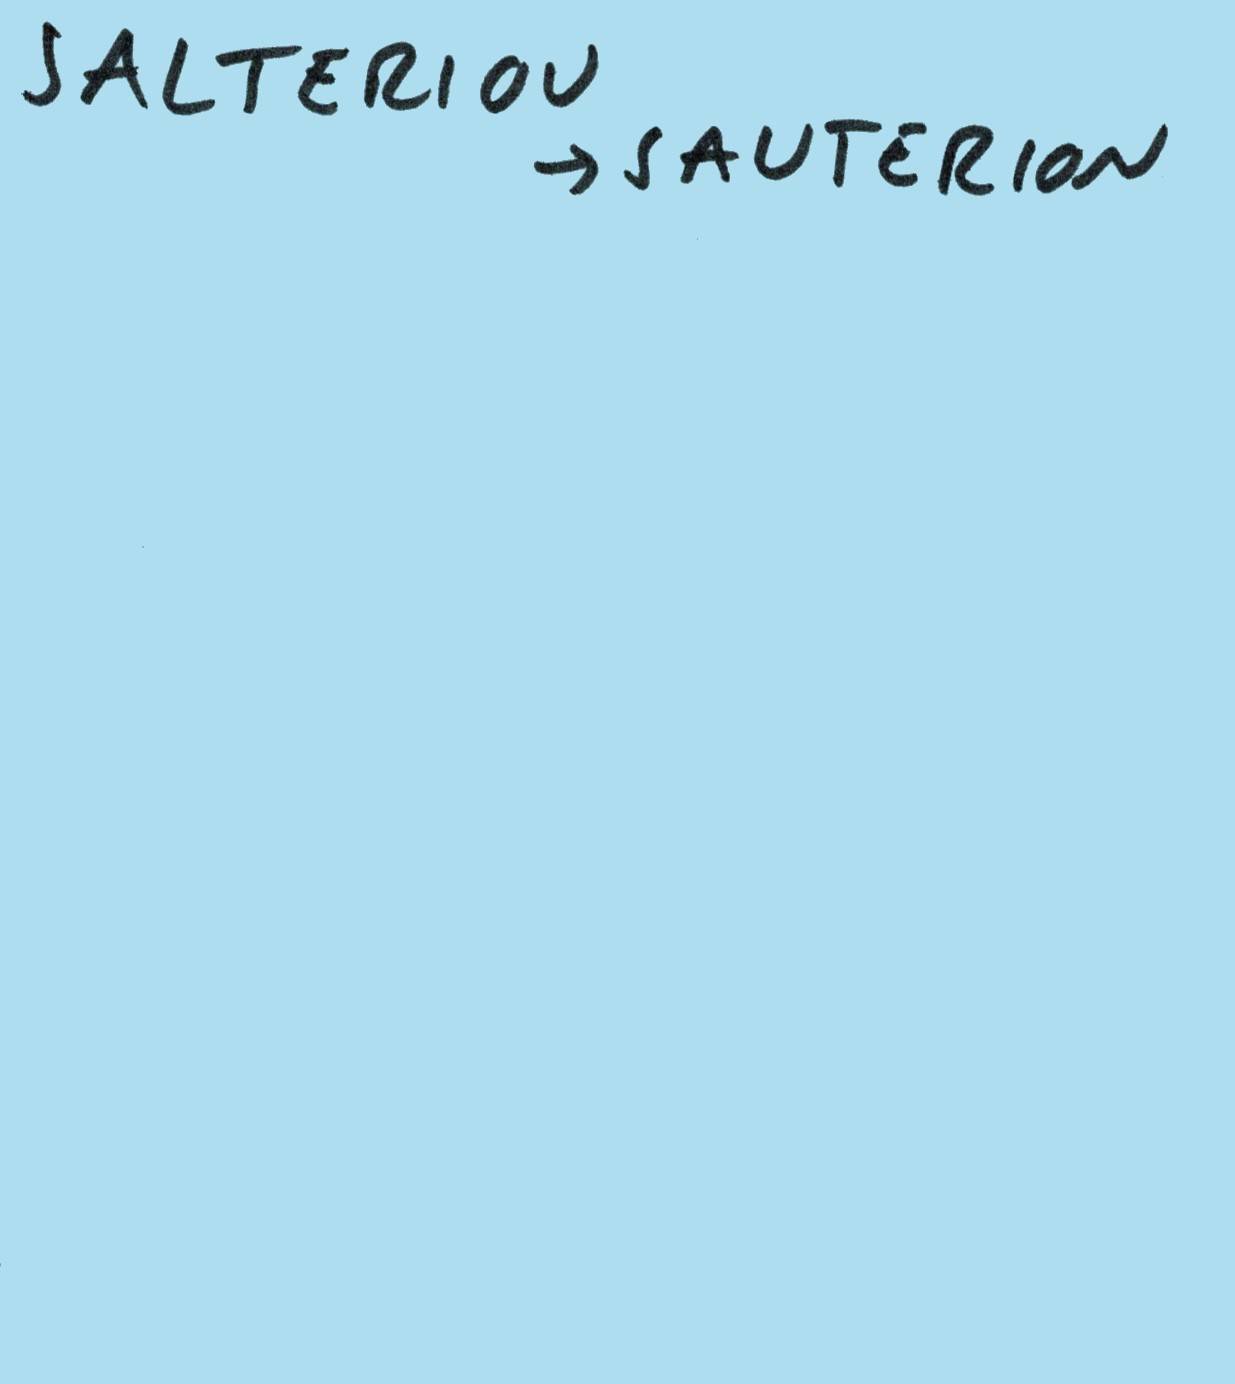 SALTERIOU
→ SAUTERION